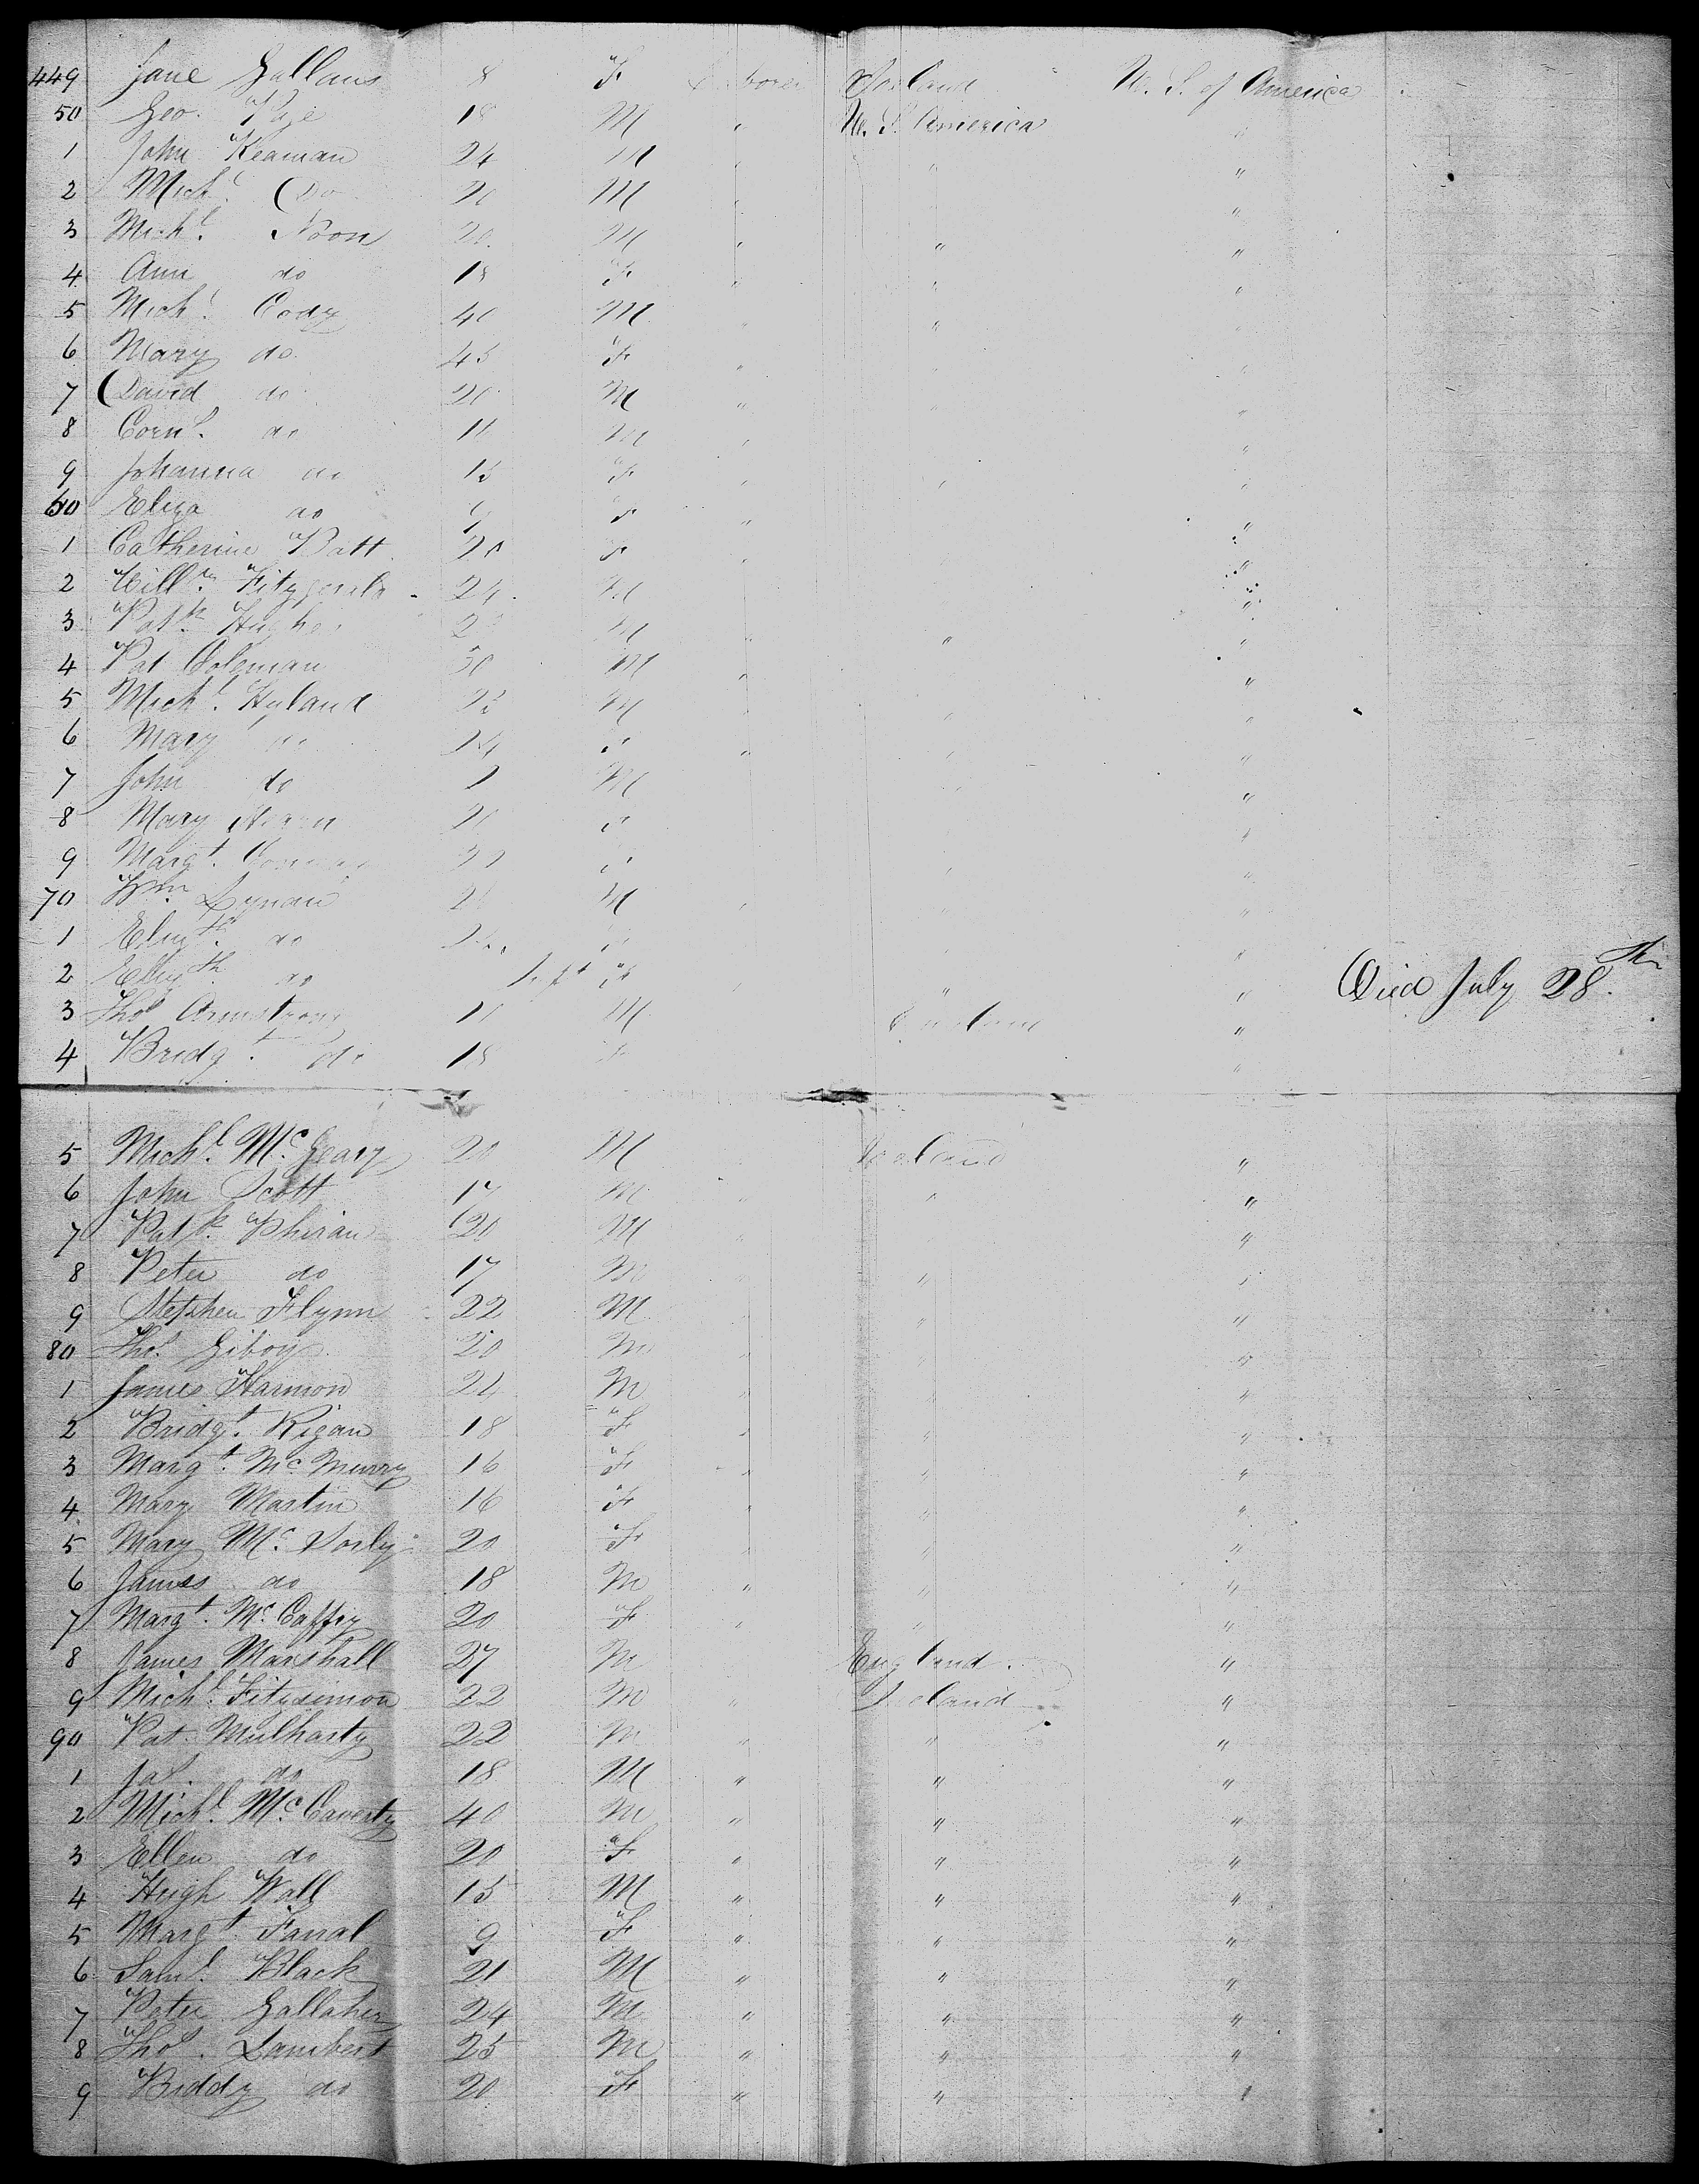 449 Jane Gallans 8 F Laborer Ireland U. S. of America
50 Geo. Page 18 M " U. S. America "
1 John Keaman 24 M " " "
2 Michl Do 20 M " " "
3 Michl. Noon 20 M " " "
4 Ann do 18 F " " "
5 Michl Cody 40 M " " "
6 Mary do 45 F " "
7 David do 20 M " " "
8 Corns. do M " "
9 Johanna do 15 F " " "
60 Eliza do 9 F " "
1 Catherine Batt 20 F " "
2 Willm. Fitzgerald 24 M "
3 Patk Hughes M " " "
4 Pat Coleman 30 M " "
5 Michl. Hyland 25 M " "
6 Mary do 24 F " " "
7 John do M " "
8 Mary F "
9 Margt. F " "
70 Wm. Lynan M " " "
1 Elizth. do F "
2 Elizth do Inft F " " " Died July 28th.
3 Thos Armstrong M "
4 Bridgt. do 18 F "
5 Michl. Mc Geary 20 M Ireland "
6 John Scott 17 M " " "
7 Patk. Phiran 20 M "
8 Peter do 17 M " "
9 Stephen Flynn 22 M " "
80 Thos. Giboy 20 M " " "
1 James Harmon 24 M " "
2 Bridgt. Rigan 18 F " " "
3 Margt. Mc Murry 16 F " " "
4 Mary Martin 16 F " " "
5 Mary Mc Sorly 20 F " " "
6 James do 18 M " " "
7 Margt. Mc Caffry 20 F " " "
8 James Marshall 27 M England. "
9 Michl. Fitzsimon 22 M " Ireland "
90 Pat. Mulharty 22 M " " "
1 Jas. do 18 M " " "
2 Michl. Mc Caverty 40 M " " "
3 Ellen do 20 F " " "
4 Hugh Wall 15 M " " "
5 Margt. Farral 9 F " " "
6 Saml. Black 21 M " " "
7 Peter Gallaher 24 M " " "
8 Thos. Lambert 25 M " " "
9 Biddy do 20 F " " "